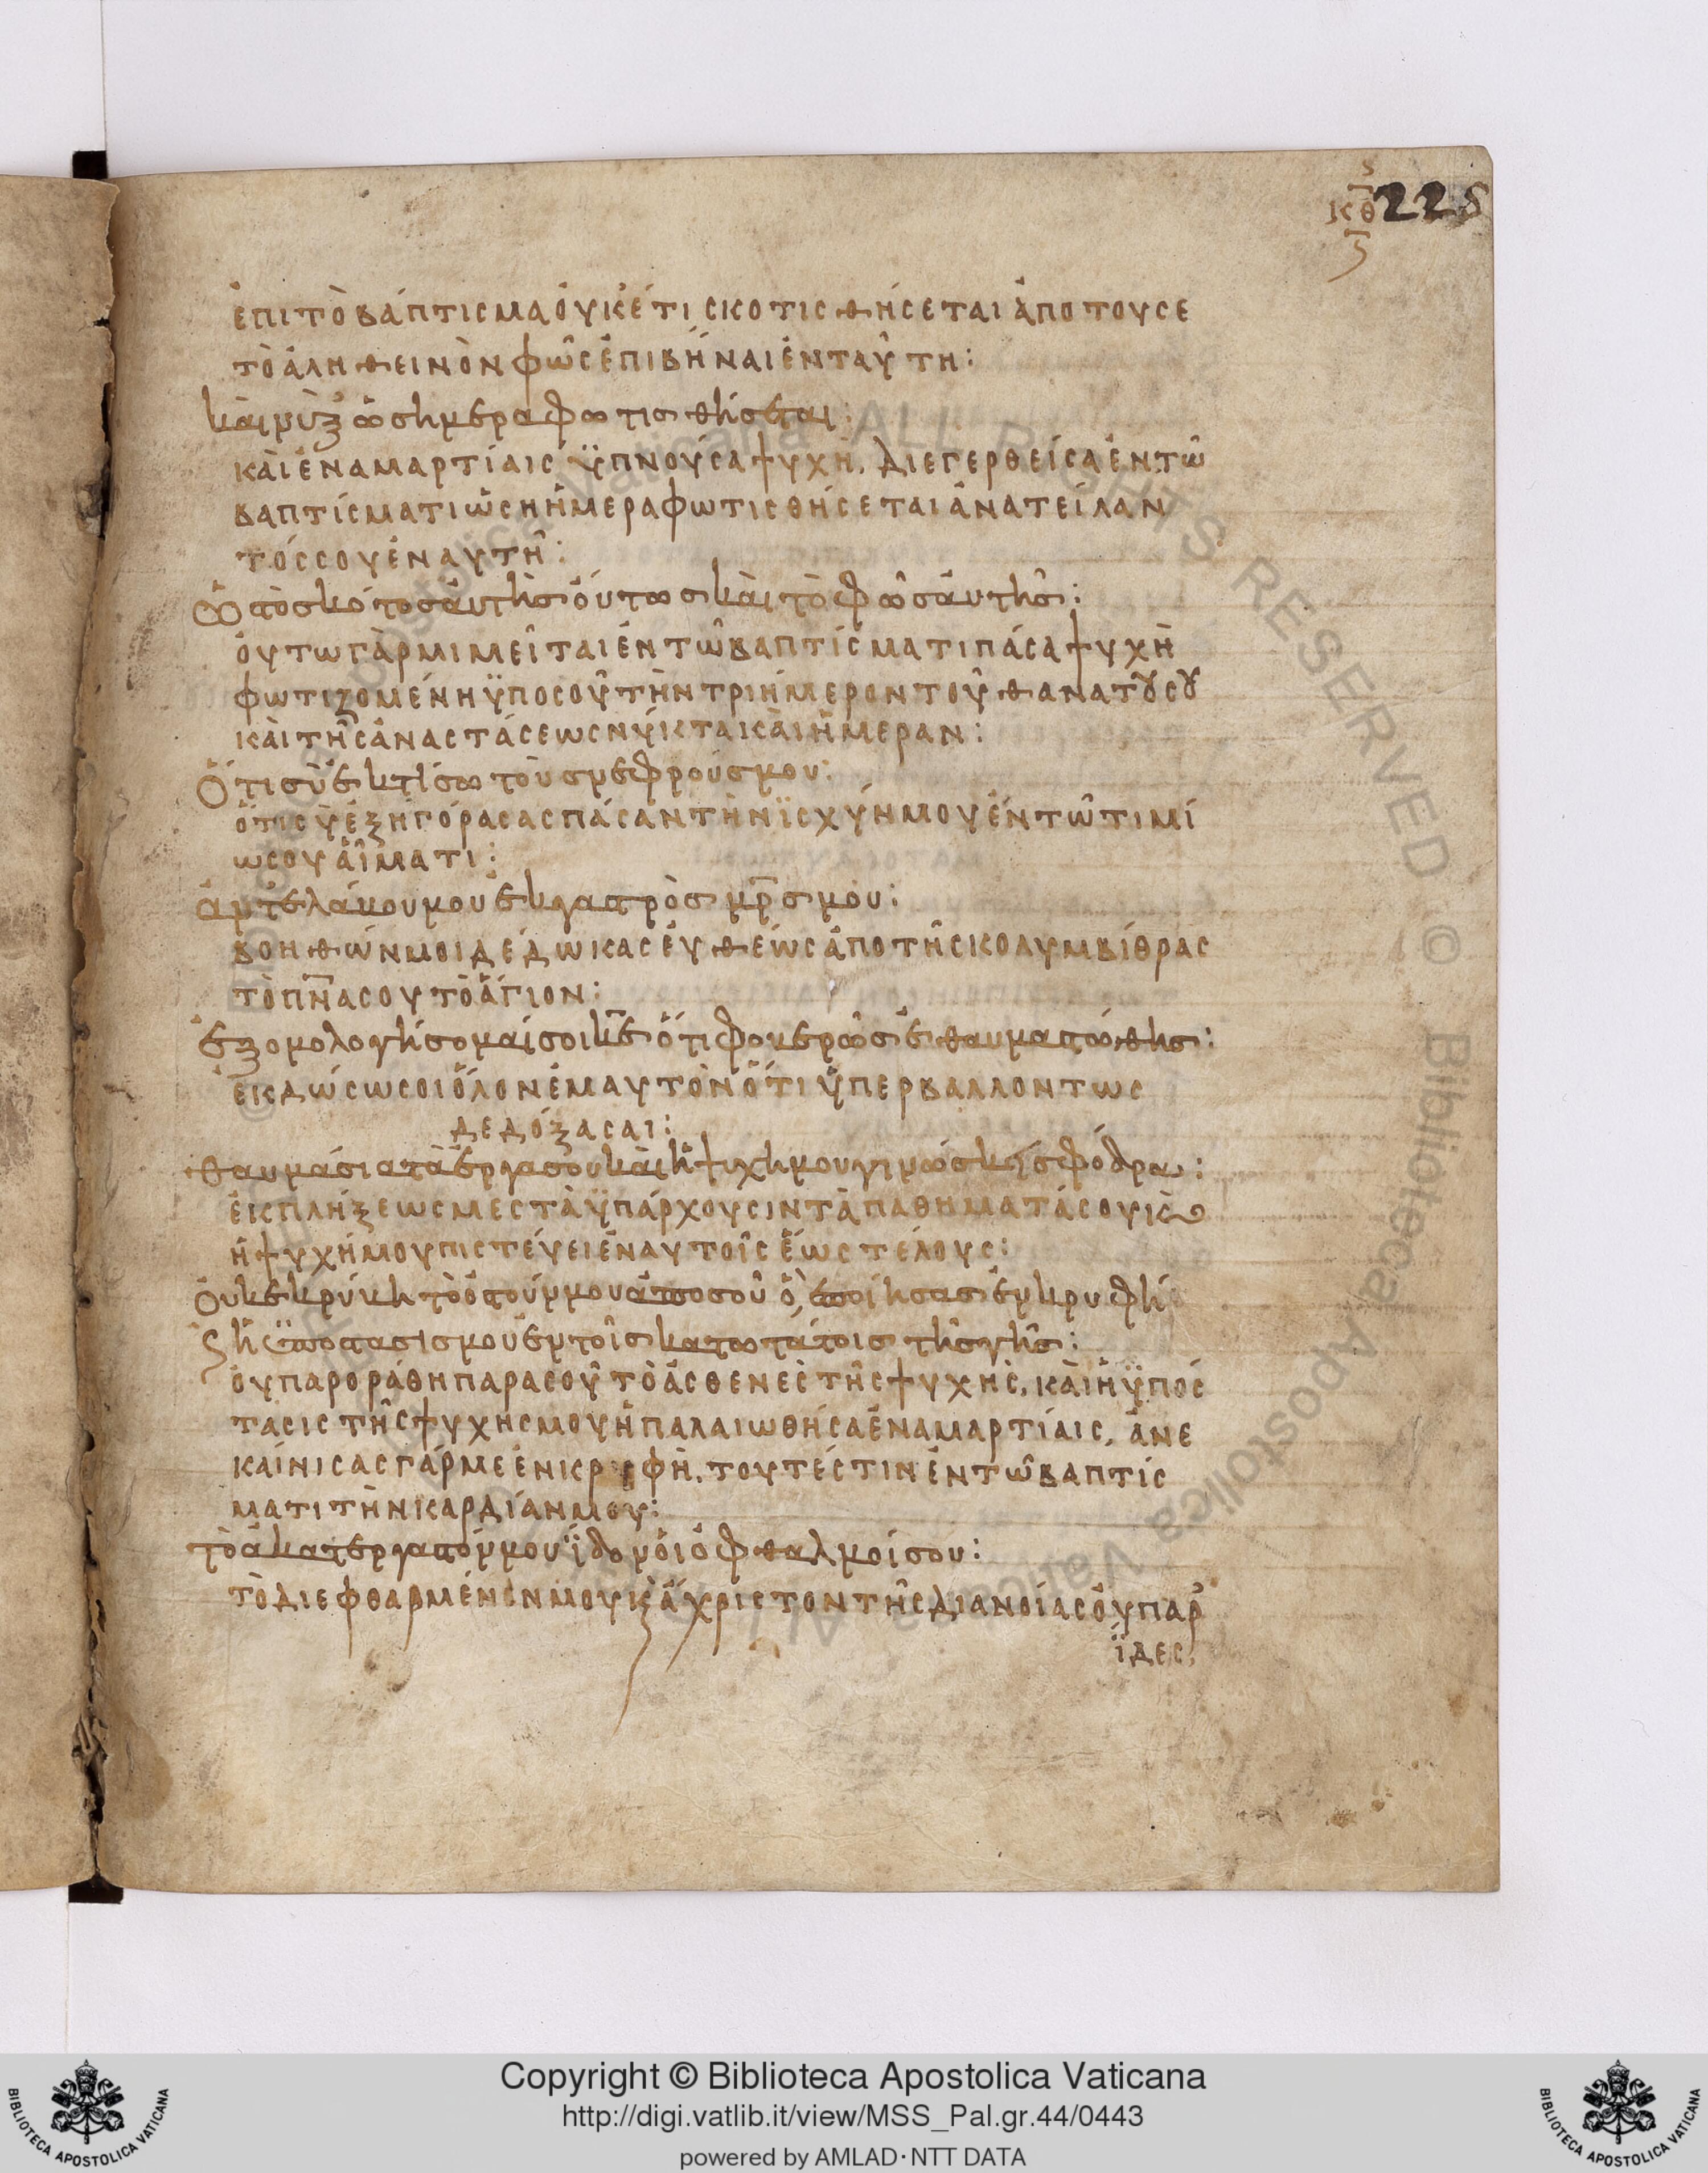 κθ 225
ζ
ἐπιτὸβάπτισμαὀυκέτι σκοτισθήσεται ἀποτουσε
τὸἀληθεινὸνφῶσἐπιβῆναιἐνταύτη:
κὰινὺξ ὡσημεραφωτισθήσεται:
κὰιἐναμαρτίαισ ϋπνούσαψυχὴ, διεγερθείσαἐντῶ
βαπτίσματιὡσηἡμεραφωτισθήσεταιἀνατείλαν
τόσσουἐναυτῆ:
Ὡστὸσκότοσἀυτὴσὀύτωσκὰιτὸφῶσἀυτῆσ:
ὀυτωγὰρμιμεῖταιἐντῶβαπτίσματιπάσαψυχὴ
φωτιζομένηϋποσοῦτὴντριήμεροντοῦθανατουσου
κὰιτῆσἀναστάσεωσνύκτακὰιἡμεραν:
Ὅτισὺἐκτίσωτοὺσνεφρούσμου:
ὅτισὺἐξηγόρασασπάσαντὴνϊσχύνμουἐντῶτιμί
ωσουἁίματι:
ἀντελάβουμουἐκγαστρὸσμρσμου:
βοηθώνμοιδέδωκασἐυθέωσἀποτῆσκολυμβίθρασ
τὸπνασουτὸἅγιον:
ἐξομολογήσομαίσοικεὅτιφοβερῶσἐθαυμαστώθησ:
ἐκδώσωσοιὅλονἐμαυτὸνὅτιὑπερβαλλοντωσ
δεδόξασαι:
θαυμάσιατὰἔργασουκὰιἡψυχημουγινώσκεισφόδρα:
ἐκπλήξεωσμεστὰϋπάρχουσιντὰπαθηματάσουκὲ
ἡψυχήμουπιστέυειἐναυτοῖσἕωστέλουσ:
Ὀυκεκρύβητὸὀστούνμουἀποσοῦὃἐποίησασἐνκρυφῆ
κ ἡϋποστασισμουἐντοῖσκατωτάτοιστῆσγῆσ:
ὀυπαροράθηπαρασοῦτὸἀσθενὲστῆσψυχῆσ, κὰιἡϋπόσ
τασιστῆσψυχησμουἡπαλαιωθήσαἐναμαρτίαισ, ἀνε
καίνισασγάρμεἐνκρυφῆ, τουτέστινἐντῶβαπτίσ
ματιτὴνκαρδίανμου:
τὸἀκατεργαστόνμουϊδονὁιὀφθαλμοίσου:
τὸδιεφθαρμένονμουκἄχριστοντῆσδιανοίασὀυπαρ
ϊδεσ,
Copyright © Biblioteca Apostolica Vaticana
http://digi.vatlib.it/view/MSS_Pal.gr.44/0443
powered by AMLAD·NTT DATA
BIBLIOTECA APOSTOLICA VATICANA
BIBLIOTECA APOSTOLICA VATICANA